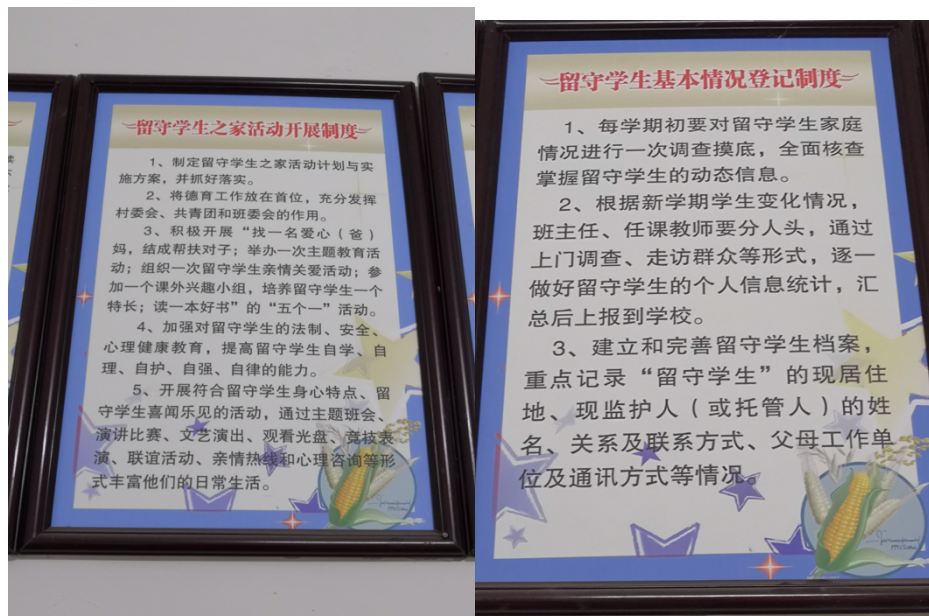 留守学生之家活动开展制度
1、制定留守学生之家活动计划与实
施方案，并抓好落实。
2、将德育工作放在首位，充分发挥
村委会、共青团和班委会的作用。
3、积极开展“找一名爱心（爸）
妈，结成帮扶对子；举办一次主题教育活
动；组织一次留守学生亲情关爱活动；参
加一个课外兴趣小组，培养留守学生一个
特长；读一本好书”的“五个一”活动。
4、加强对留守学生的法制、安全、
心理健康教育，提高留守学生自学、自
理、自护、自强、自律的能力。
5、开展符合留守学生身心特点、留
守学生喜闻乐见的活动，通过主题班会、
演讲比赛、文艺演出、观看光盘、竞技表
演、联谊活动、亲情热线和心理咨询等形
式丰富他们的日常生活。
留守学生基本情况登记制度
1、每学期初要对留守学生家庭
情况进行一次调查摸底，全面核查
掌握留守学生的动态信息。
2、根据新学期学生变化情况，
班主任、任课教师要分人头，通过
上门调查、走访群众等形式，逐一
做好留守学生的个人信息统计，汇
总后上报到学校。
3、建立和完善留守学生档案，
重点记录“留守学生”的现居住
地、现监护人（或托管人）的姓
名、关系及联系方式、父母工作单
位及通讯方式等情况。